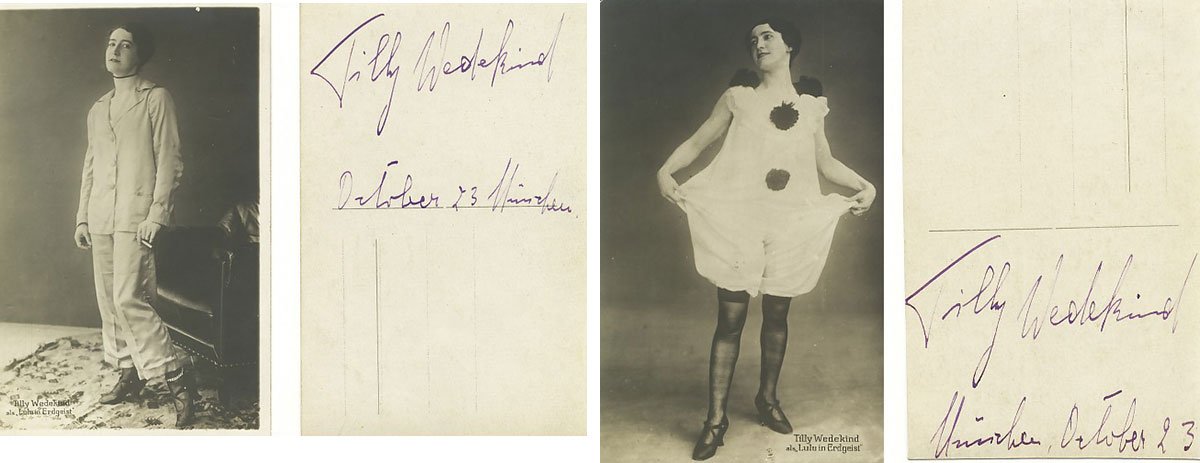 Tilly Wedekind
als „Lulu in Erdgeist"
Tilly Wedekind
October 23 München.
Tilly Wedekind
als „Lulu in Erdgeist"
Tilly Wedekind
München, October 23